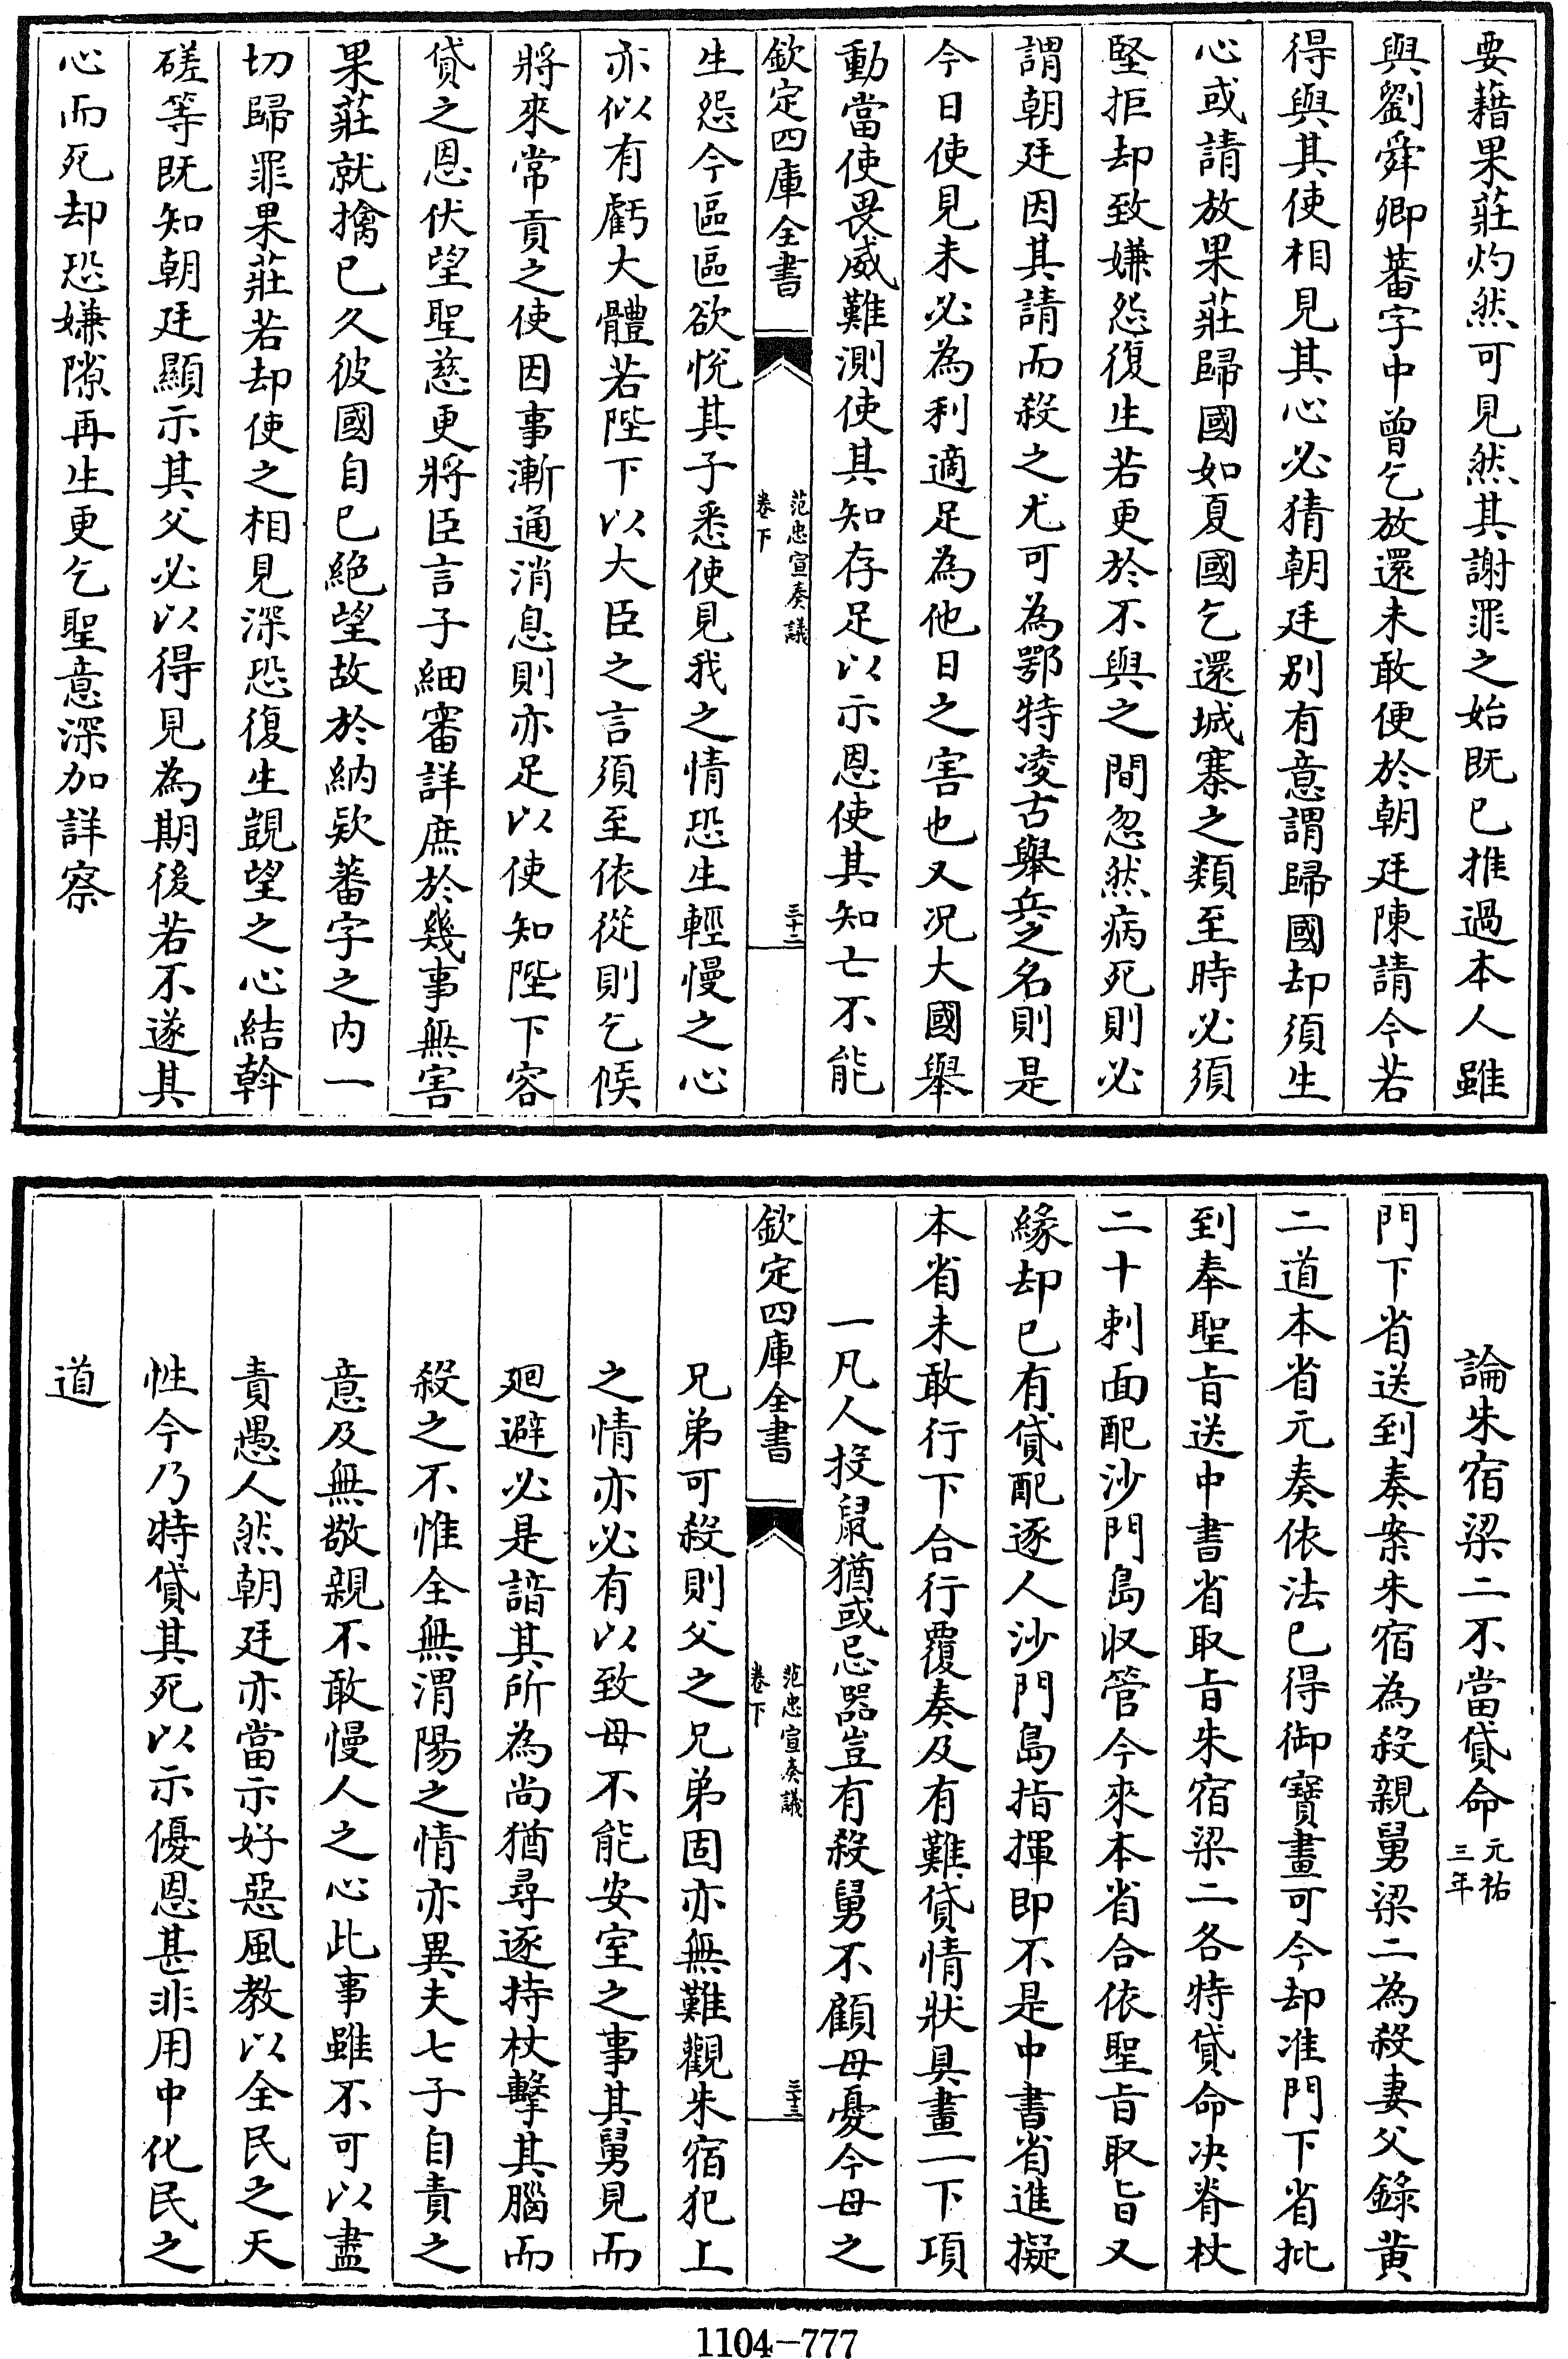 要藉果莊灼然可見然其謝罪之始既已推過本人雖
與劉舜卿蕃字中曾乞放還未敢便於朝廷陳請今若
得與其使相見其心必猜朝廷別有意謂歸國却須生
心或請放果莊歸國如夏國乞還城寨之類至時必須
堅拒却致嫌怨復生若更於不與之間忽然病死則必
謂朝廷因其請而殺之尤可為鄂特凌古舉兵之名則是
今日使見未必為利適足為他日之害也又况大國舉
動當使畏威難測使其知存足以示恩使其知亡不能
欽定四庫全書
范忠宣奏議
卷下
三十二
生怨今區區欲悅其子悉使見我之情恐生輕慢之心
亦似有虧大體若陛下以大臣之言須至依從則乞候
將來常貢之使因事漸通消息則亦足以使知陛下容
貸之恩伏望聖慈更將臣言子細審詳庶於幾事無害
果莊就擒已久彼國自已絕望故於納欵蕃字之内一
切歸罪果莊若却使之相見深恐復生覬望之心結斡
磋等既知朝廷顯示其父必以得見為期後若不遂其
心而死却恐嫌隙再生更乞聖意深加詳察
論朱宿梁二不當貸命元祐三年
門下省送到奏案朱宿為殺親舅梁二為殺妻父錄黄
二道本省元奏依法已得御寶畫可今却准門下省批
到奉聖旨送中書省取旨朱宿梁二各特貸命决脊杖
二十刺面配沙門島收管今來本省合依聖旨取旨又
緣却已有貸配逐人沙門島指揮即不是中書省進擬
本省未敢行下合行覆奏及有難貸情狀具畫一下項
一凡人投鼠猶或忌器豈有殺舅不顧母憂今母之
欽定四庫全書
范忠宣奏議
卷下
三十三
兄弟可殺則父之兄弟固亦無難觀朱宿犯上
之情亦必有以致母不能安室之事其舅見而
廻避必是諳其所為尚猶尋逐持杖擊其腦而
殺之不惟全無渭陽之情亦異夫七子自責之
意及無敬親不敢慢人之心此事雖不可以盡
責愚人然朝廷亦當示好惡風教以全民之天
性今乃特貸其死以示優恩甚非用中化民之
道
1104-777